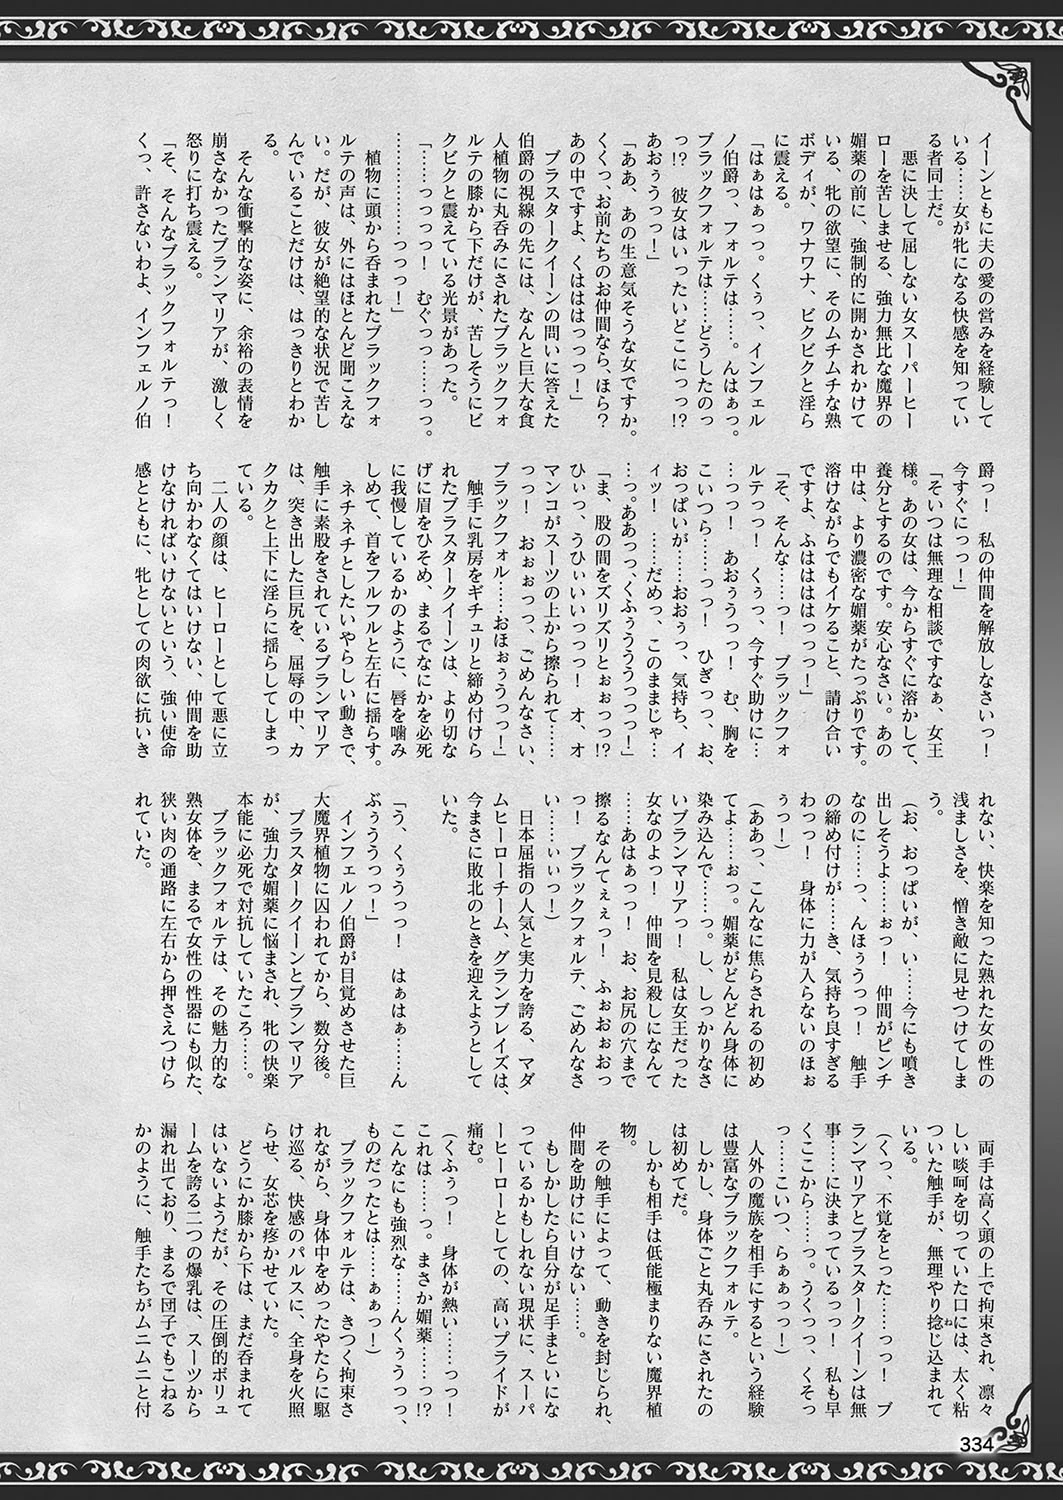 イーンともに夫の愛の営みを経験して
いる……女が牝になる快感を知ってい
る者同士だ。
　悪に決して屈しない女スーパーヒー
ローを苦しませる、強力無比な魔界の
媚薬の前に、強制的に開かされかけて
いる、牝の欲望に、そのムチムチな熟
ボディが、ワナワナ、ビクビクと淫ら
に震える。
「はぁはぁっっ。くぅっ、インフェル
ノ伯爵っ、フォルテは……。んはぁっ。
ブラックフォルテは……どうしたのっ
っ!?　彼女はいったいどこにっっ!?
あおぅうっっ！」
「ああ、あの生意気そうな女ですか。
くくっ、お前たちのお仲間なら、ほら？
あの中ですよ、くはははっっっ！」
　ブラスタークイーンの問いに答えた
伯爵の視線の先には、なんと巨大な食
人植物に丸呑みにされたブラックフォ
ルテの膝から下だけが、苦しそうにビ
クビクと震えている光景があった。
「……っっっっ！　むぐっっ……っっ。
………………っっっ！」
　植物に頭から呑まれたブラックフォ
ルテの声は、外にはほとんど聞こえな
い。だが、彼女が絶望的な状況で苦し
んでいることだけは、はっきりとわか
る。
　そんな衝撃的な姿に、余裕の表情を
崩さなかったブランマリアが、激しく
怒りに打ち震える。
「そ、そんなブラックフォルテっ！
くっ、許さないわよ、インフェルノ伯
爵っ！　私の仲間を解放しなさいっ！
今すぐにっっ！」
「そいつは無理な相談ですなぁ、女王
様。あの女は、今からすぐに溶かして、
養分とするのです。安心なさい。あの
中は、より濃密な媚薬がたっぷりです。
溶けながらでもイケること、請け合い
ですよ、ふはははははっっっ！」
「そ、そんな……っ！　ブラックフォ
ルテっっ！　くぅっ、今すぐ助けに…
…っっ！　あおぅうっっ！　む、胸を
こいつら……っっ！　ひぎっっ、お、
おっぱいが……おおぅっ、気持ち、イ
ィッ！　……だめっ、このままじゃ…
…っ。ああっっ、くふぅううううっっっ」
「ま、股の間をズリズリとぉぉっっ!?
ひぃっ、うひぃいいっっっ！　オ、オ
マンコがスーツの上から擦られて……
っっ！　おぉぉっっ、ごめんなさい、
ブラックフォル……おほぉぅうっっ！」
　触手に乳房をギチュリと締め付けら
れたブラスタークイーンは、より切な
げに眉をひそめ、まるでなにかを必死
に我慢しているかのように、唇を噛み
しめて、首をフルフルと左右に揺らす。
　ネチネチとしたいやらしい動きで、
触手に素股をされているブランマリア
は、突き出した巨尻を、屈辱の中、カ
クカクと上下に淫らに揺らしてしまっ
ている。
　二人の顔は、ヒーローとして悪に立
ち向かわなくてはいけない、仲間を助
けなければいけないという、強い使命
感とともに、牝としての肉欲に抗いき
れない、快楽を知った熟れた女の性の
浅ましさを、憎き敵に見せつけてしま
う。
（お、おっぱいが、い……今にも噴き
出しそうよ……ぉっ！　仲間がピンチ
なのに……っ、んほぅうっっ！　触手
の締め付けが……き、気持ち良すぎる
わっっ！　身体に力が入らないのほぉ
ぅっ！）
（ああっ、こんなに焦らされるの初め
てよ……ぉっ。媚薬がどんどん身体に
染み込んで……っ。し、しっかりなさ
いブランマリアっ！　私は女王だった
女なのよっ！　仲間を見殺しになんて
……あはぁっっ！　お、お尻の穴まで
擦るなんてぇぇっ！　ふぉぉぉぉっ
っ！　ブラックフォルテ、ごめんなさ
い……ぃぃっ！）
　日本屈指の人気と実力を誇る、マダ
ムヒーローチーム、グランブレイズは、
今まさに敗北のときを迎えようとして
いた。
「う、くぅうっっ！　はぁはぁ……ん
ぶぅううっっ！」
　インフェルノ伯爵が目覚めさせた巨
大魔界植物に囚われてから、数分後。
　ブラスタークイーンとブランマリア
が、強力な媚薬に悩まされ、牝の快楽
本能に必死で対抗していたころ……。
　ブラックフォルテは、その魅力的な
熟女体を、まるで女性の性器にも似た、
狭い肉の通路に左右から押さえつけら
れていた。
　両手は高く頭の上で拘束され、凛々
しい啖呵を切っていた口には、太く粘
ついた触手が、無理やり捻じ込まれて
いる。
（くっ、不覚をとった……っっ！　ブ
ランマリアとブラスタークイーンは無
事……に決まっているっ！　私も早
くここから……っ。うくっっ、くそっ
っ……こいつ、らぁぁっっ！）
　人外の魔族を相手にするという経験
は豊富なブラックフォルテ。
　しかし、身体ごと丸呑みにされたの
は初めてだ。
　しかも相手は低能極まりない魔界植
物。
　その触手によって、動きを封じられ、
仲間を助けにいけない……。
　もしかしたら自分が足手まといにな
っているかもしれない現状に、スーパ
ーヒーローとしての、高いプライドが
痛む。
（くふぅっ！　身体が熱い……っっ！
これは……っ。まさか媚薬……っ!?
こんなにも強烈な……んくぅうっっ、
ものだったとは……ぁぁっ！）
　ブラックフォルテは、きつく拘束さ
れながら、身体中をめったやたらに駆
け巡る、快感のパルスに、全身を火照
らせ、女芯を疼かせていた。
　どうにか膝から下は、まだ呑まれて
はいないようだが、その圧倒的ボリュ
ームを誇る二つの爆乳は、スーツから
漏れ出ており、まるで団子でもこねる
かのように、触手たちがムニムニと付
ね
334